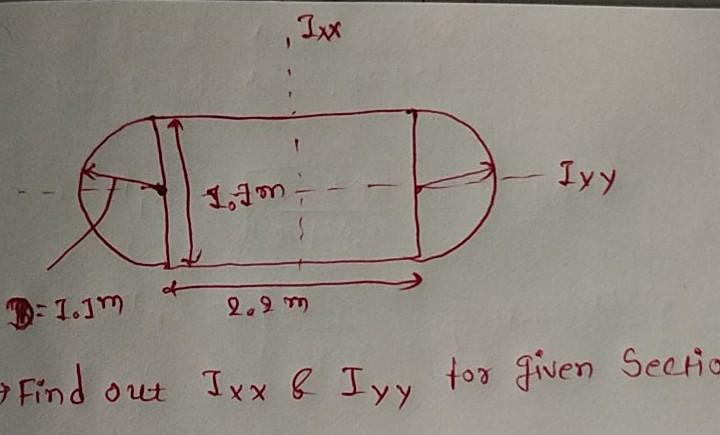 Ixx
1.1m
Iyy
D=1.1m
2.2 m
→ Find out Ixx & Iyy for given Sectio